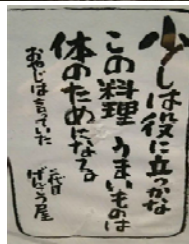 少しは役に立つかな
この料理 うまいものは
体のためになる
おやじは言っていた
げんこつ屋